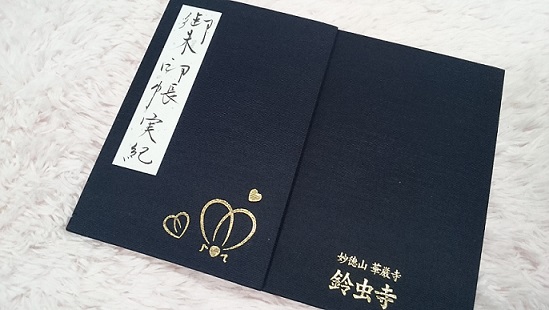 御朱印帳 実紀
妙徳山 華厳寺
鈴虫寺